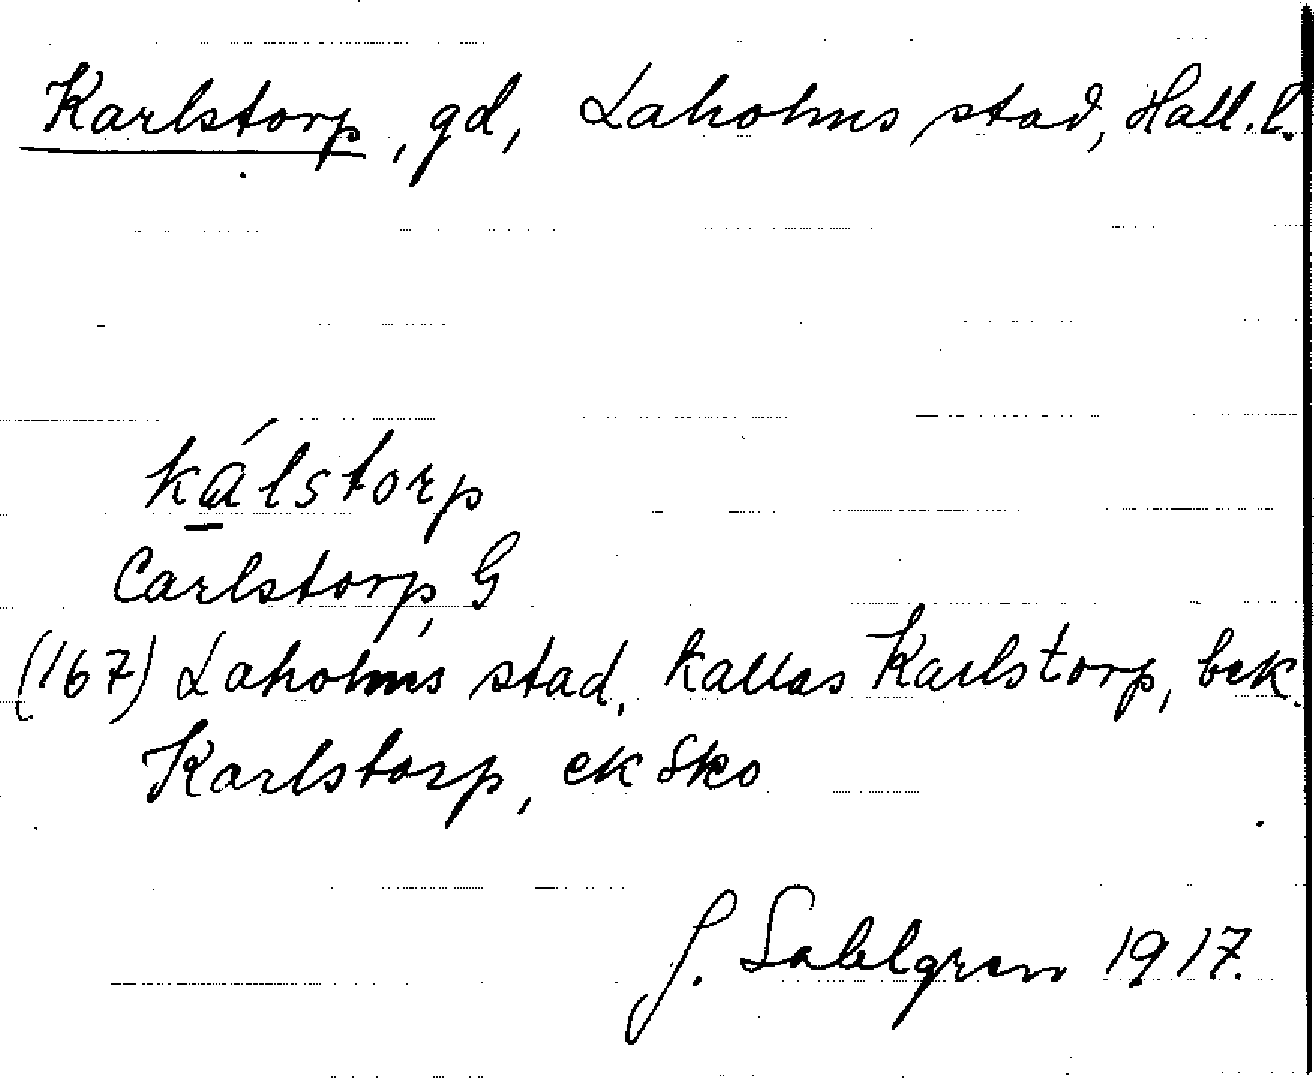 Karlstorp, gd, Laholms stad, Hall. l.
kálstorp
Carlstorp, G
(167) Laholms stad, kallas Karlstorp, bek.
Karlstorp, ek Sko
J. Sahlgren 1917.